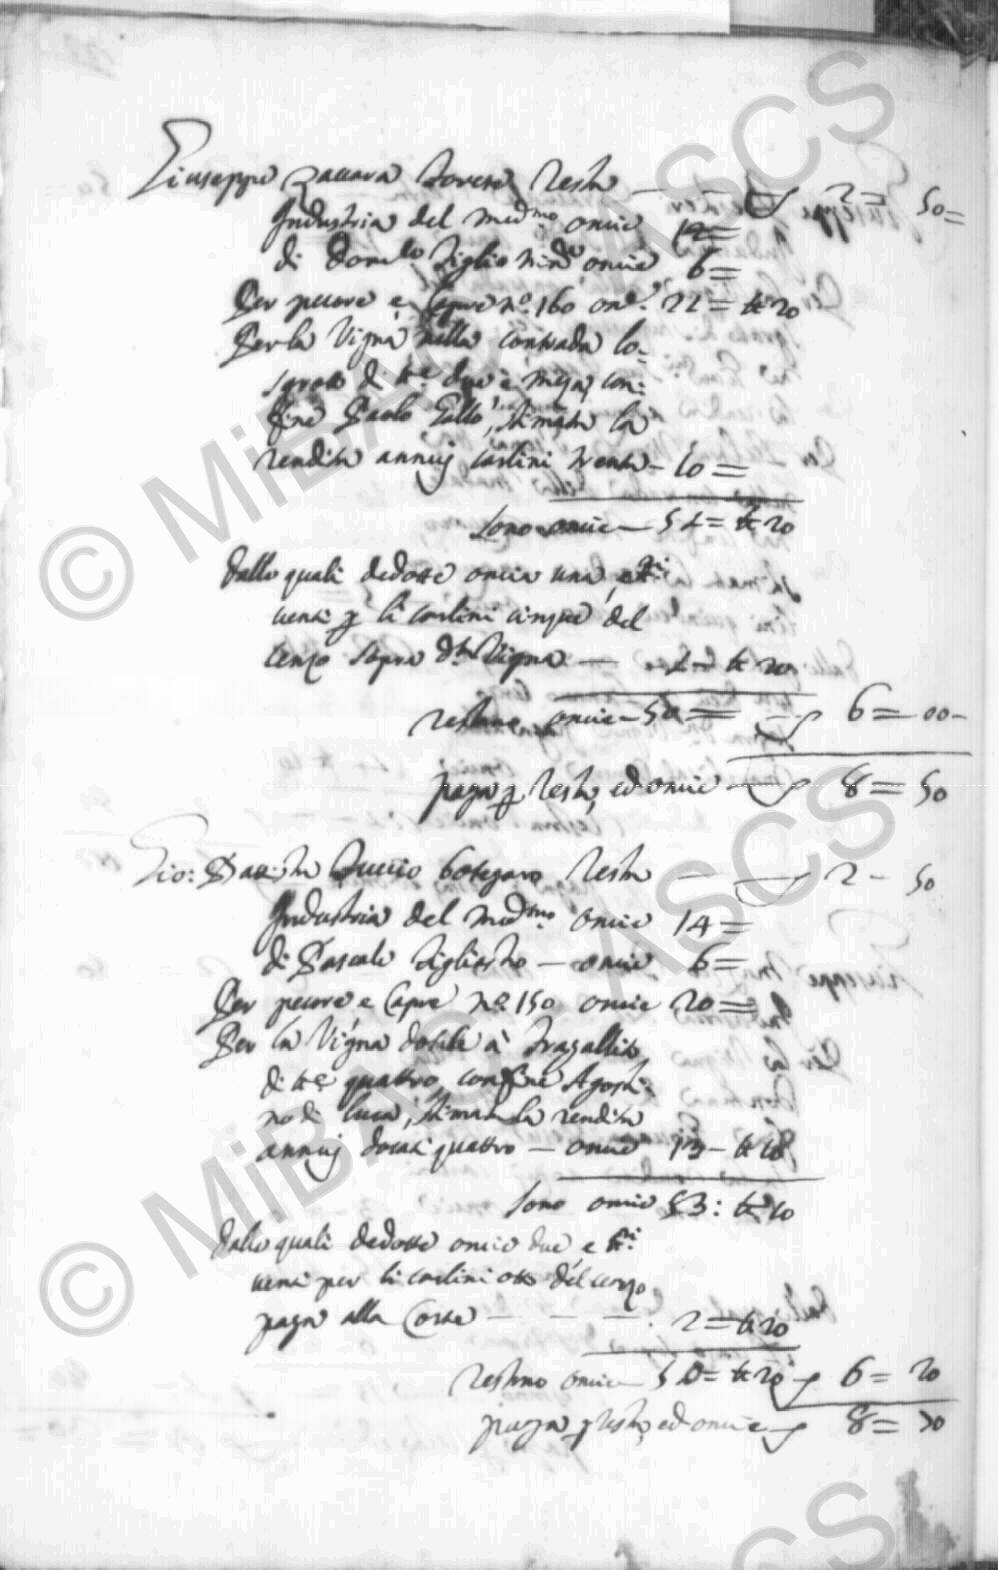 Giuseppe Zaccara Forese Testa — — — 2 = 50 =
Industria del med.mo oncie 12 =
di Dom.co figlio min.e oncie 6 =
Per pecore e Capre n.o 160 onc.e 22 = tt 20
Per la Vigna nella contrada lo=
di tt.e due e meza, con=
fine Paolo Gallo, stimata la
rendita annuj carlini trenta — 10 =
sono oncie — 51 = tt 20
Dalle quali dedotte oncia una, e tt.i
venti p li carlini cinque del
cenzo sopra d.ta Vigna — 1 = tt 20
restano oncie — 50 = — 6 = 00 —
paga p testa, ed oncie — 8 = 50
Gio: Batista Testa — — 2 — 50
Industria del med.mo oncie 14 =
di Pascale figliastro — oncie 6 =
Per pecore e Capre n.o 150 oncie 20 =
Per la Vigna dotale à
di tt.e quattro, confine Agosti=
no di Luca, stimata la rendita
annuj docati quattro — oncie 13 — tt 10
sono oncie 53: tt 10
Dalle quali dedotte oncie due, e tt.i
venti per li carlini otto del cenzo
paga alla Corte — — — 2 = tt 20
restano oncie — 50 = tt 20 — 6 = 20
paga p testa, ed oncie — 8 = 70
© MiBAC - ASCS
© MiBAC - ASCS